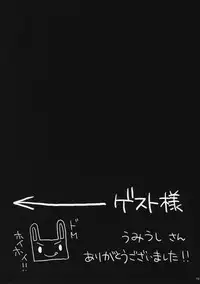 ゲスト様
うみうし さん
ありがとうございました!!
ドM
ホイホイ!!